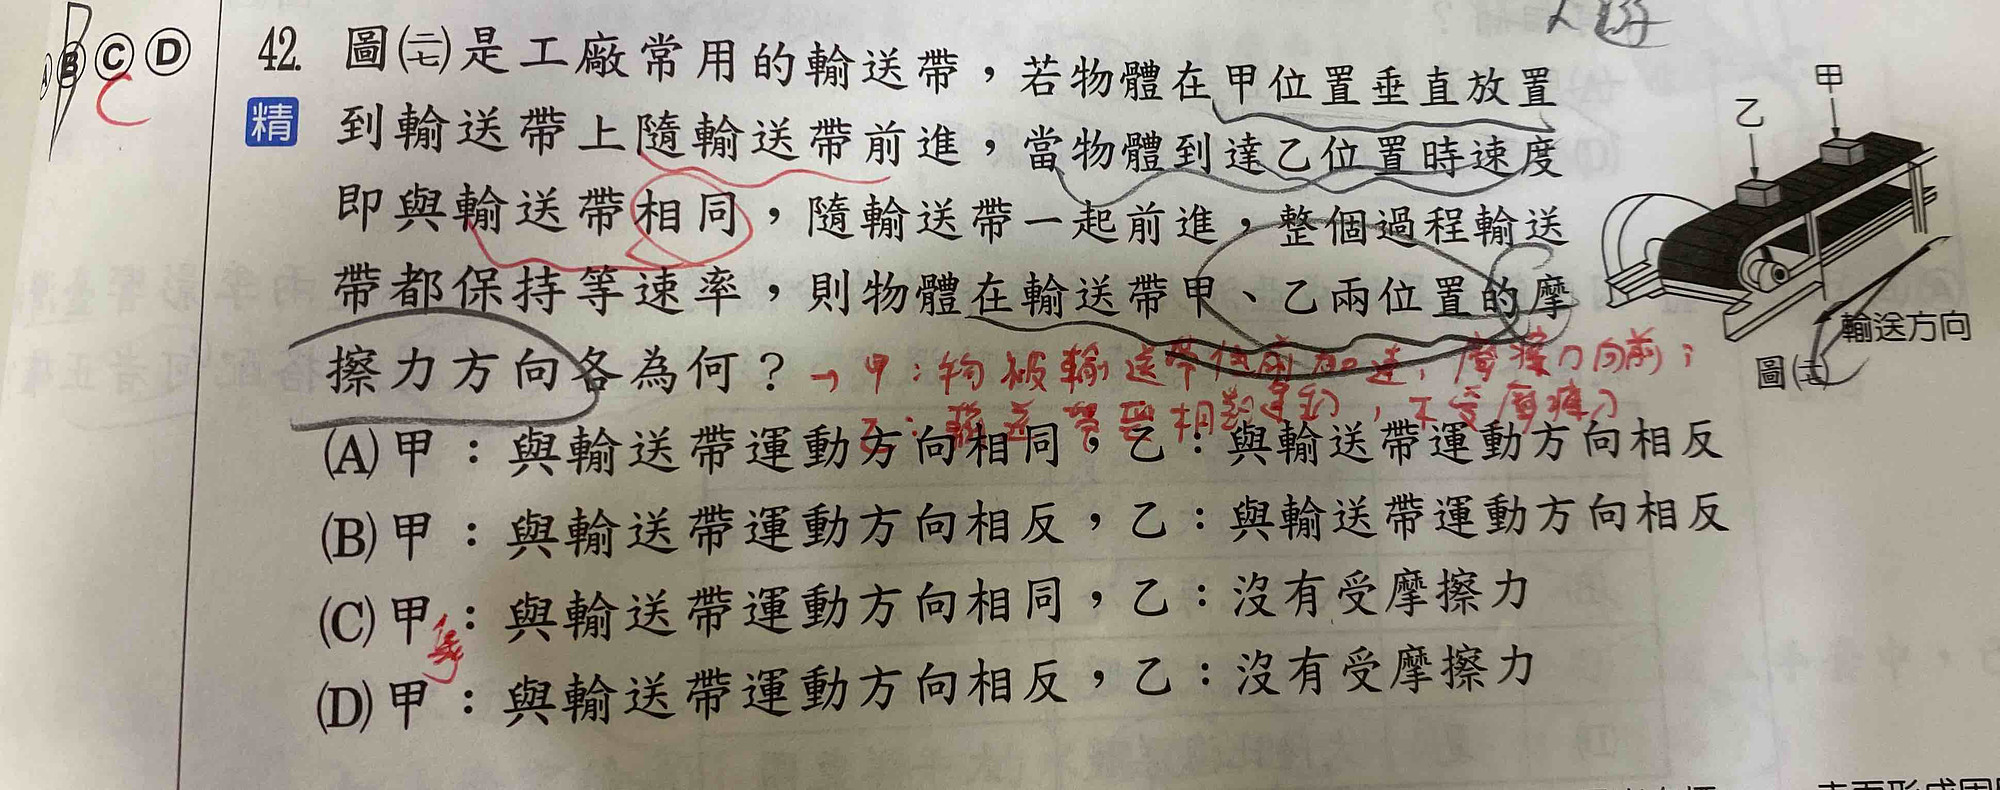 B C D
C
42. 圖(二七)是工廠常用的輸送帶，若物體在甲位置垂直放置
精 到輸送帶上隨輸送帶前進，當物體到達乙位置時速度
即與輸送帶相同，隨輸送帶一起前進，整個過程輸送
帶都保持等速率，則物體在輸送帶甲、乙兩位置的摩
擦力方向各為何？
→甲：物被輸送帶 加速，摩擦力向前；
乙： ，不受摩擦力
(A)甲：與輸送帶運動方向相同，乙：與輸送帶運動方向相反
(B)甲：與輸送帶運動方向相反，乙：與輸送帶運動方向相反
(C)甲：與輸送帶運動方向相同，乙：沒有受摩擦力
(D)甲：與輸送帶運動方向相反，乙：沒有受摩擦力
甲
乙
輸送方向
圖(二七)